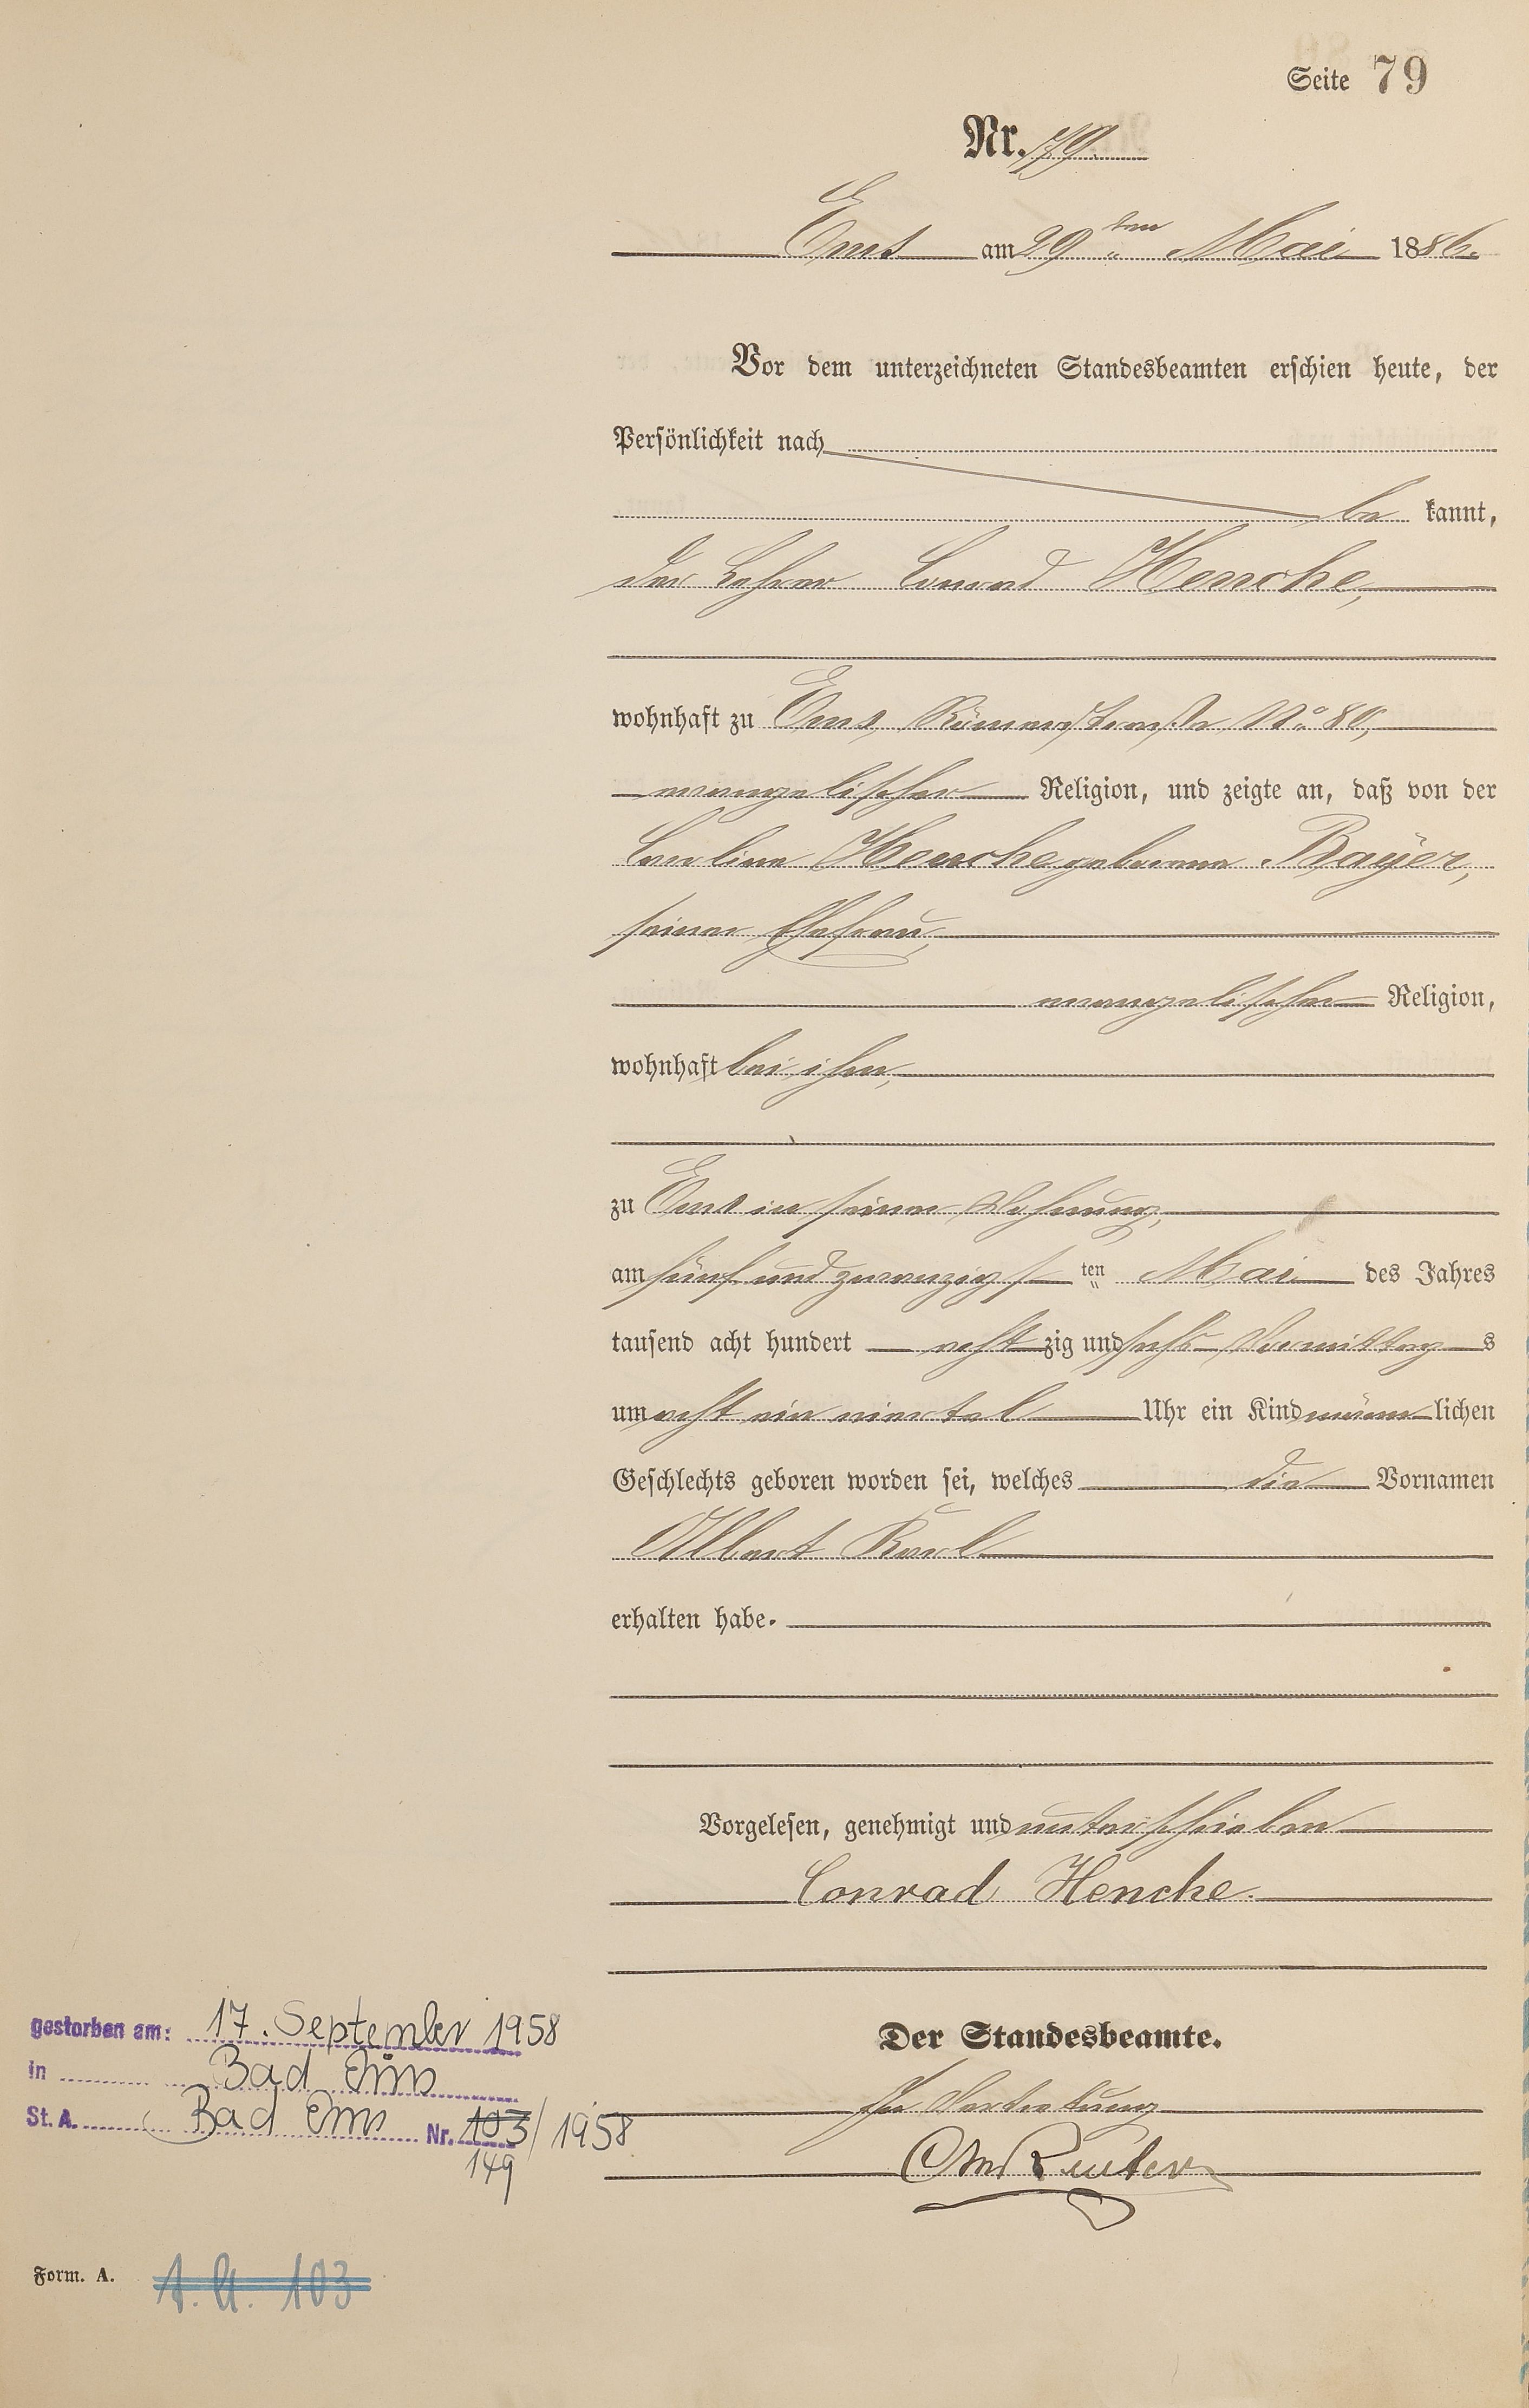 Seite 79
Nr. 79.
Ems am 29 ten Mai 1886.
Vor dem unterzeichneten Standesbeamten erschien heute, der
Persönlichkeit nach
be kannt,
der Lehrer Conrad Henche,
wohnhaft zu Ems, Römerstraße No. 80,
evangelischer Religion, und zeigte an, daß von der
Caroline Henche geborene Bayer,
seiner Ehefrau,
evangelischer Religion,
wohnhaft bei ihm,
zu Ems in seiner Wohnung,
am fünf und zwanzigs ten Mai des Jahres
tausend acht hundert acht zig und sechs Vormittag s
um acht ein viertel Uhr ein Kind männ lichen
Geschlechts geboren worden sei, welches die Vornamen
Albert Karl
erhalten habe.
Vorgelesen, genehmigt und unterschrieben
Conrad Henche.
Der Standesbeamte.
In Vertretung
Reuter
gestorben am: 17. September 1958
in Bad Ems
St. A. Bad Ems Nr. 103/1958
149
Form. A. A. A. 103